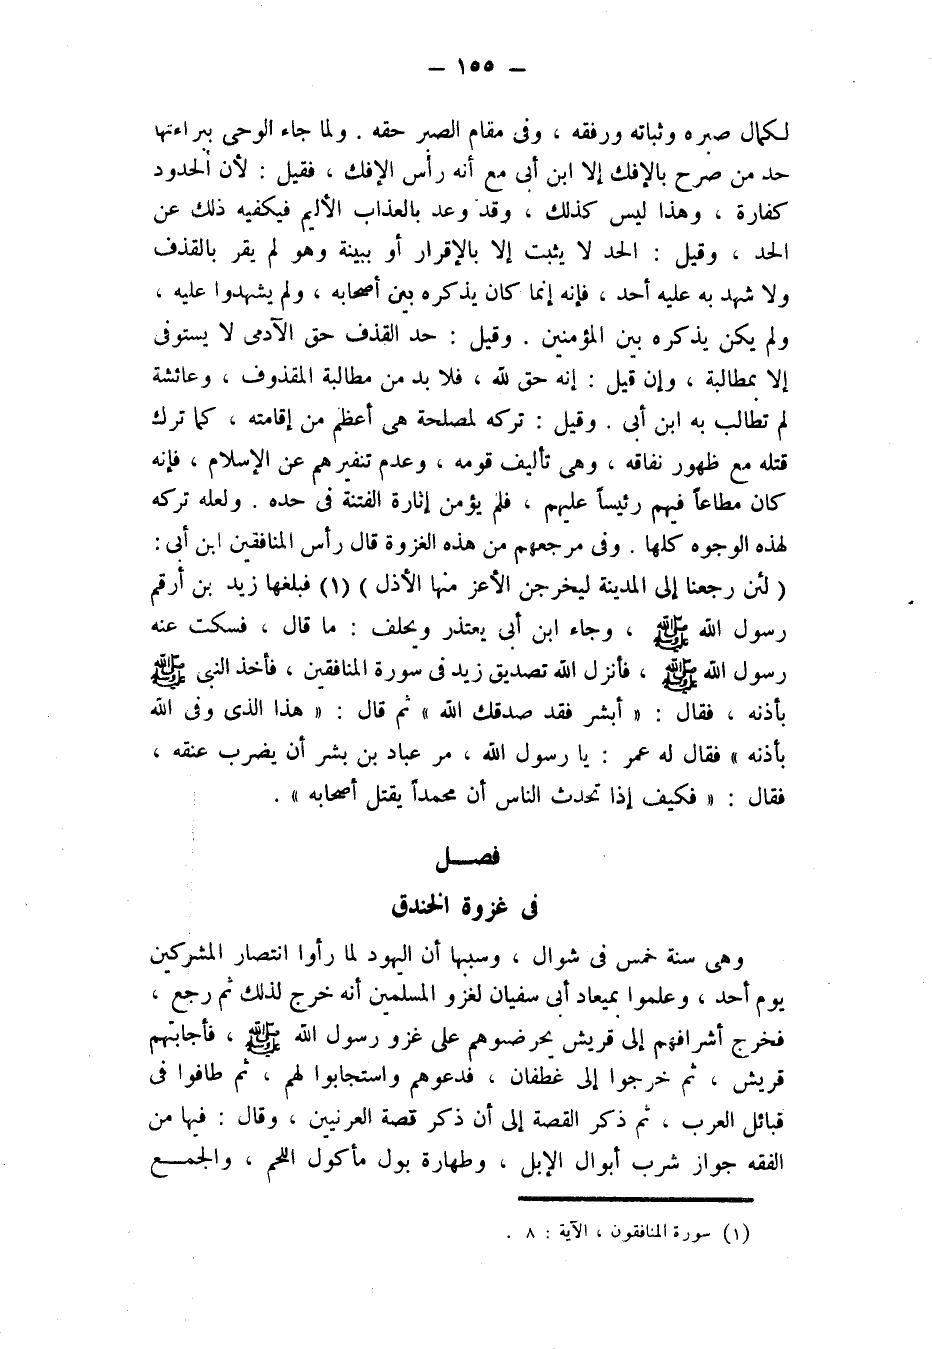 — ١٥٥ —
لكمال صبره وثباته ورفقه ، وفى مقام الصبر حقه . ولما جاء الوحى ببراءتها
حد من صرح بالإفك إلا ابن أبى مع أنه رأس الإفك ، فقيل : لأن الحدود
كفارة ، وهذا ليس كذلك ، وقد وعد بالعذاب الأليم فيكفيه ذلك عن
الحد ، وقيل : الحد لا يثبت إلا بالإقرار أو ببينة وهو لم يقر بالقذف
ولا شهد به عليه أحد ، فإنه إنما كان يذكره بين أصحابه ، ولم يشهدوا عليه ،
ولم يكن يذكره بين المؤمنين . وقيل : حد القذف حق الآدمى لا يستوفى
إلا بمطالبة ، وإن قيل : إنه حق لله ، فلا بد من مطالبة المقذوف ، وعائشة
لم تطالب به ابن أبى . وقيل : تركه لمصلحة هى أعظم من إقامته ، كما ترك
قتله مع ظهور نفاقه ، وهى تأليف قومه ، وعدم تنفيرهم عن الإسلام ، فإنه
كان مطاعاً فيهم رئيساً عليهم ، فلم يؤمن إثارة الفتنة فى حده . ولعله تركه
لهذه الوجوه كلها . وفى مرجعهم من هذه الغزوة قال رأس المنافقين ابن أبى :
( لئن رجعنا إلى المدينة ليخرجن الأعز منها الأذل ) (١) فبلغها زيد بن أرقم
رسول الله ﷺ ، وجاء ابن أبى يعتذر ويحلف : ما قال ، فسكت عنه
رسول الله ﷺ ، فأنزل الله تصديق زيد فى سورة المنافقين ، فأخذ النبى ﷺ
بأذنه ، فقال : « أبشر فقد صدقك الله » ثم قال : « هذا الذى وفى الله
بأذنه » فقال له عمر : يا رسول الله ، مر عباد بن بشر أن يضرب عنقه ،
فقال : « فكيف إذا تحدث الناس أن محمداً يقتل أصحابه » .
فصـــل
فى غزوة الخندق
وهى سنة خمس فى شوال ، وسببها أن اليهود لما رأوا انتصار المشركين
يوم أحد ، وعلموا بميعاد أبى سفيان لغزو المسلمين أنه خرج لذلك ثم رجع ،
فخرج أشرافهم إلى قريش يحرضوهم على غزو رسول الله ﷺ ، فأجابتهم
قريش ، ثم خرجوا إلى غطفان ، فدعوهم واستجابوا لهم ، ثم طافوا فى
قبائل العرب ، ثم ذكر القصة إلى أن ذكر قصة العرنيين ، وقال : فيها من
الفقه جواز شرب أبوال الإبل ، وطهارة بول مأكول اللحم ، والجمـــع
(١) سورة المنافقون ، الآية : ٨ .